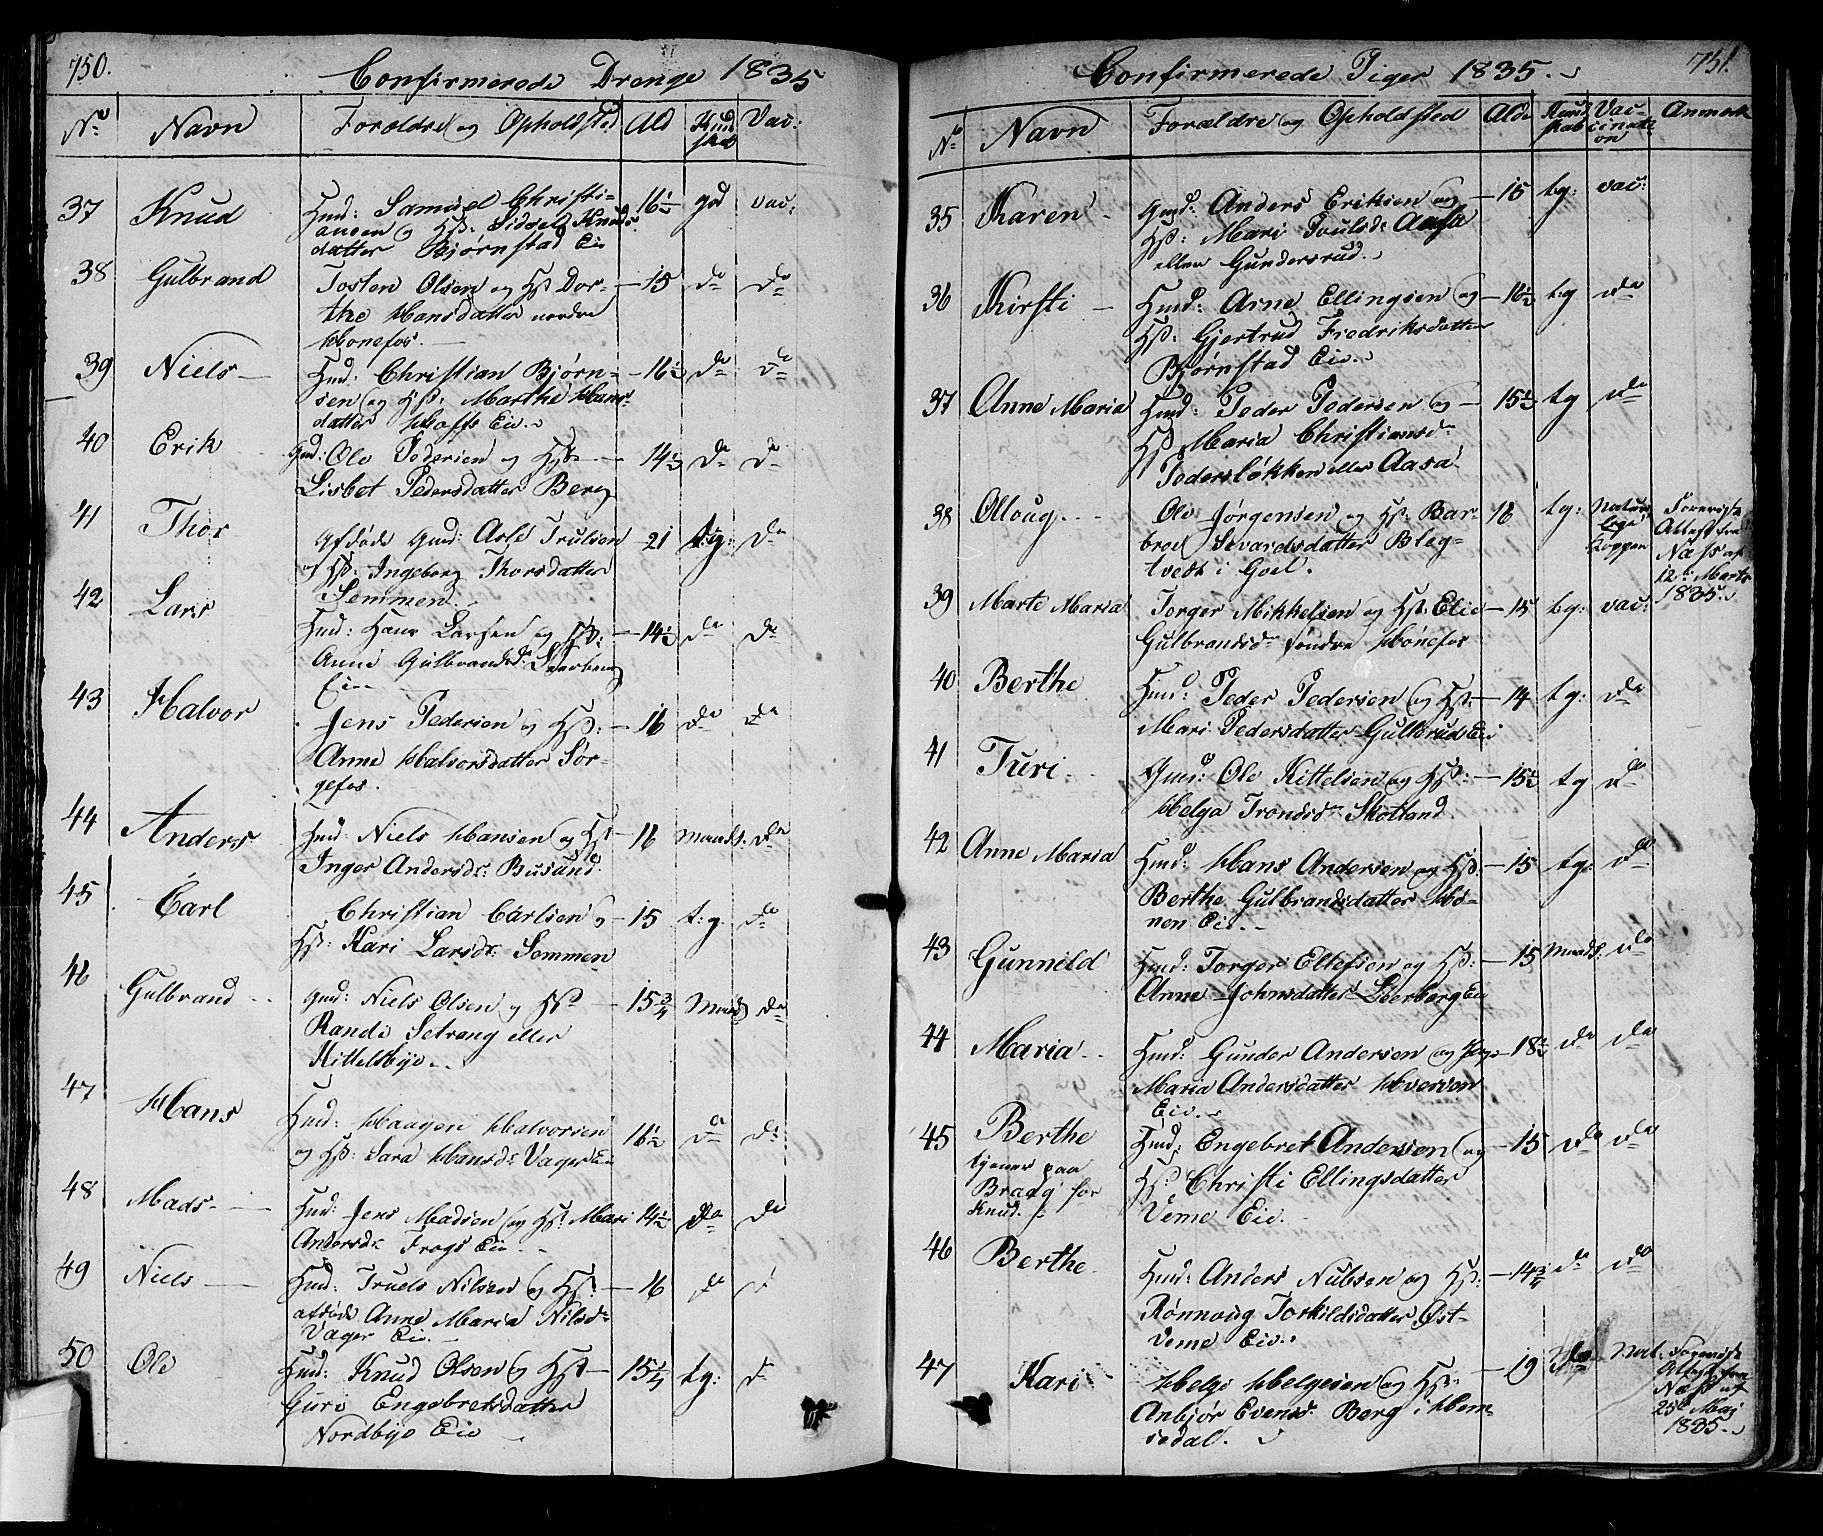 750.
Confirmerede Drenge 1835
No Navn Forældre og Opholdsted Ald Kundskab Vac:
37 Knud Hmd: Samuel Christi- 16½ gd vac:
ansen og Hst: Sidsel Knuds
datter Bjørnstad Eie
38 Gulbrand Tosten Olsen og Hst Dor- 15 do do
the Hansdatter nordre
Hønefos.
39 Niels Hmd: Christian Bjørn- 16½ do do
sen og Hst: Marthe Hans
datter Hoffs Eie.
40 Erik Gmd: Ole Pedersen og Hst 14½ do do
Lisbet Pedersdatter Berg
41 Thor Afdøde Gmd: Asle Trulsen 21 tg: do
og Hst: Ingeborg Thorsdatter
Semmen
42 Lars Hmd: Hans Larsen og Hst: 14½ do do
Anne Gulbrandsd:
Eie
43 Halvor Jens Pedersen og Hst: 16 do do
Anne Halvorsdatter Sør-
gefos.
44 Anders Hmd: Niels Hansen og Hst 16 Maads. do
Inger Andersdr: Busund
45 Carl Christian Carlsen og 15 t:g. do
Hst: Kari Larsdr: Semmen
46 Gulbrand Gmd: Niels Olsen og Hst 15¾ Maads do
Rande Setrang eller
Kittelsbye
47 Hans Hmd: Haagen Halvorsen 16½ do do
og Hst: Sara Hansdr Vager Eie
48 Mads Hmd: Jens Madsen og Hst: Mari 14½ do do
Andersdr Frogs Eie
49 Niels Hmd: Truels Nilsen og Hst: 16 do d
afdøde Anne Maria Nilsdr
Vager Eie.
50 Ole Hmd: Knud Olsen og Hst 15¼ tg: d
Guro Engebretsdatter
Nordbye Eie
751.
Confirmerede Piger 1835.
No Navn Forældre og Opholdsted Alde Kundskab Vaccination Anmerk
35 Karen Gmd: Anders Eriksen og 15 tg: vac:
Hst: Mari Poulsd: Aasa
eller Gundersrud.
36 Kirsti Hmd: Arne Ellingsen og 16½ t:g do
Hst: Gjertrud Fredriksdatter
Bjørnstad Eie.
37 Anne Maria Hmd: Peder Pedersen og 15½ tg do
Hst Maria Christiansdr
Pedersløkken eller Aasa
38 Olloug Ole Jørgensen og Hst: Bar- 18 tg: Natur- Foreviste
broe Sevardsdatter Bleg- lige Attest fra
tvedt i Goel. Kopper Næs af
12te Marts
1835.
39 Marte Maria Torger Mikkelsen og Hst: Elie 15 tg: vac:
Gulbrandsdr søndre Hønefos
40 Berthe Hmd: Peder Pedersen og Hst 14 tg: do
Mari Pedersdatter Gulsrud Eie
41 Turi Gmd: Ole Kittelsen og Hst: 15½ tg do
Helga Trondsdr Skotland
42 Anne Maria Hmd: Hans Andersen og Hst: 15 tg: do
Berthe Gulbrandsdatter Hø-
nen Eie.
43 Gunnild Hmd: Torger Ellefsen og Hst: 15 Maads. do
Anne Johnsdatter Leerberg Eie
44 Maria Hmd: Gunder Andersen og 18½ do do
Maria Andersdatter Hverven
Eie.
45 Berthe Hmd: Engebret Andersen og 15 do do
tjener paa Hst: Christi Ellingsdatter
Bradg for Veme Eie.
Knud.
46 Berthe Hmd: Anders Nubsen og Hst: 14¾ do do
Rønnoug Torkildsdatter Øst-
Veme Eie.
47 Kari Helge Helgesen og Hst: 19 do Nat. Foreviste
Anbjør Evensd: Berg i Hem- Attest fra
sedal. Næs af
25de Maj
1835.